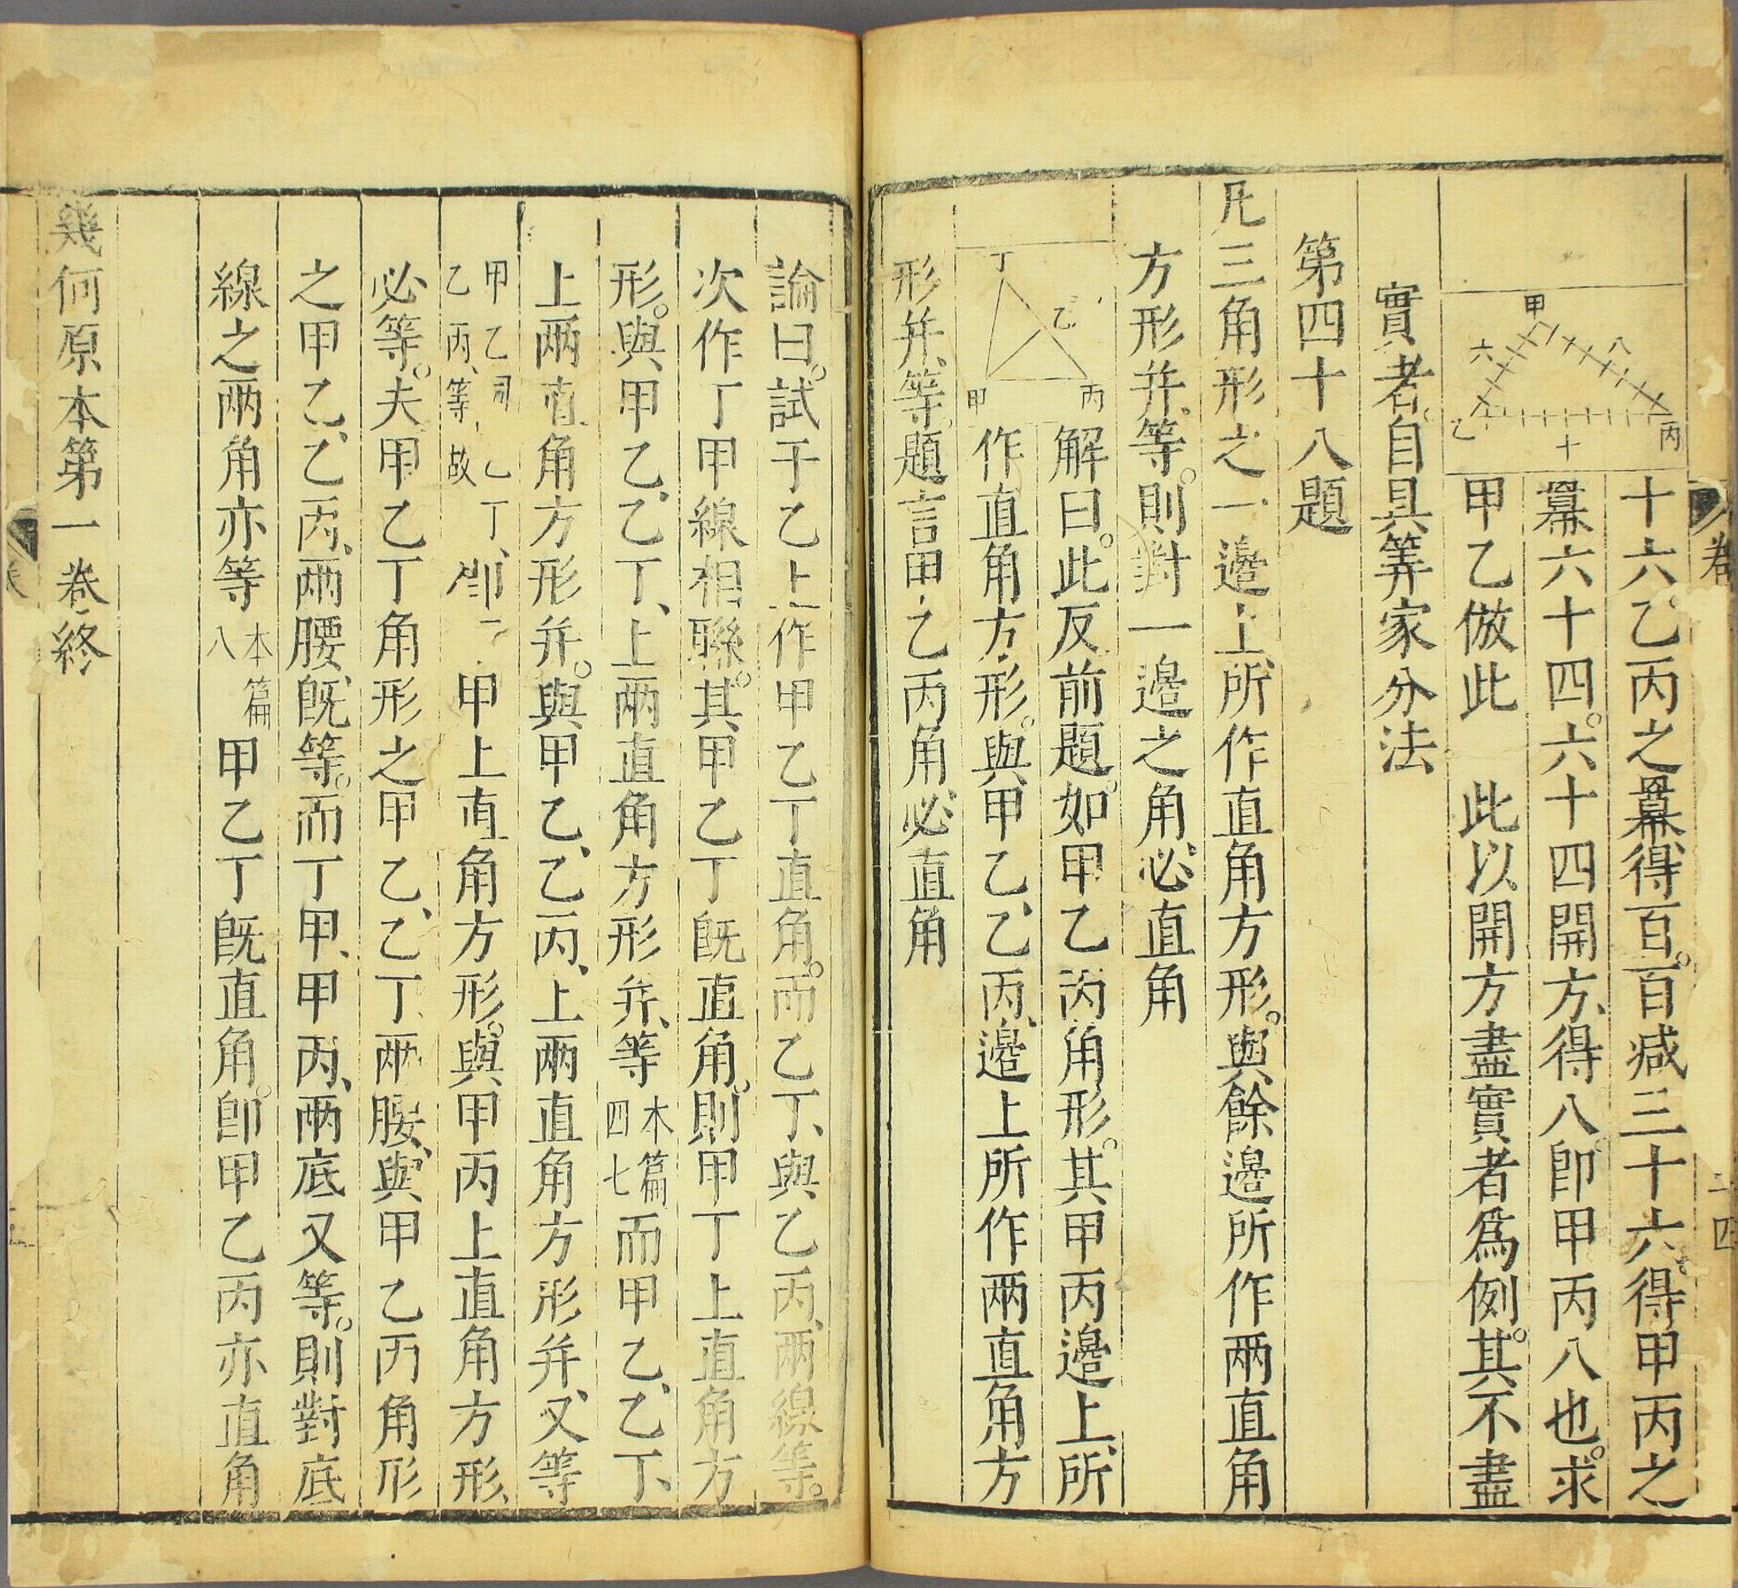 十六乙丙之羃得百。百减三十六得甲丙之
羃六十四。六十四開方、得八即甲丙八也。求
甲乙倣此 此以開方盡實者爲例。其不盡
甲
六
八
乙
十
丙
實者。自具筭家分法
第四十八題
凡三角形之一邉上、所作直角方形。與餘邉所作兩直角
方形并、等。則對一邉之角、必直角
丁
乙
甲
丙
解曰。此反前題。如甲乙丙角形。其甲丙邉上、所
作直角方形。與甲乙、乙丙、邉上所作兩直角方
形并、等、題言甲乙丙角、必直角
論曰。試于乙上作甲乙丁直角。而乙丁、與乙丙、兩線等。
次作丁甲線相聯。其甲乙丁旣直角。則甲丁上直角方
形。與甲乙、乙丁、上兩直角方形并、等本篇四七而甲乙、乙丁、
上兩直角方形并。與甲乙、乙丙、上兩直角方形并、又等
甲乙同乙丁乙丙、等故即丁甲上直角方形。與甲丙上直角方形、
必等。夫甲乙丁角形之甲乙、乙丁兩腰、與甲乙丙角形
之甲乙、乙丙、兩腰、旣等。而丁甲、甲丙、兩底又等。則對底
線之兩角亦等本篇八甲乙丁旣直角。即甲乙丙亦直角
幾何原本第一卷終
卷
二四